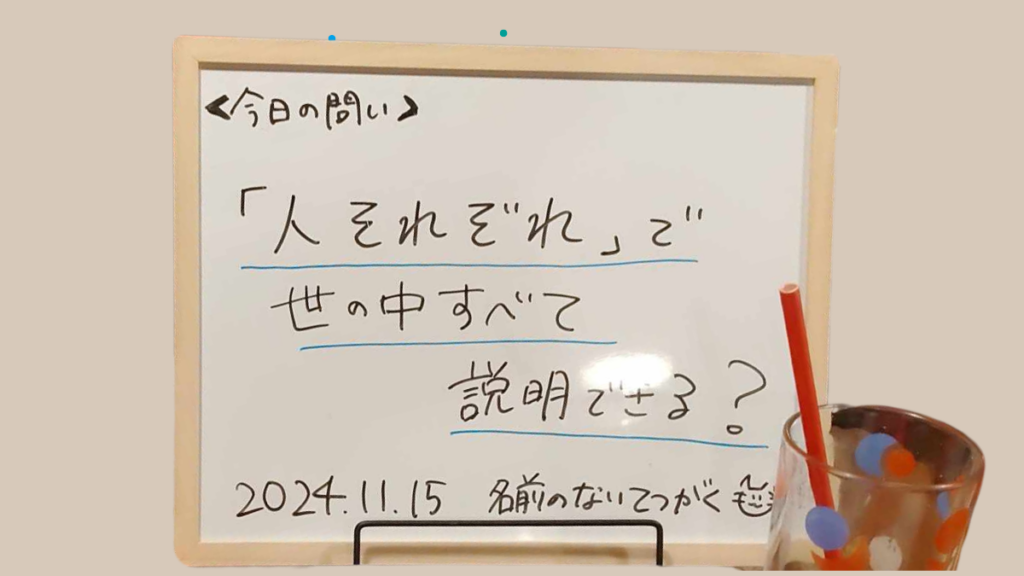 <今日の問い>
「人それぞれ」で
世の中すべて
説明できる?
2024.11.15 名前のないてつがく